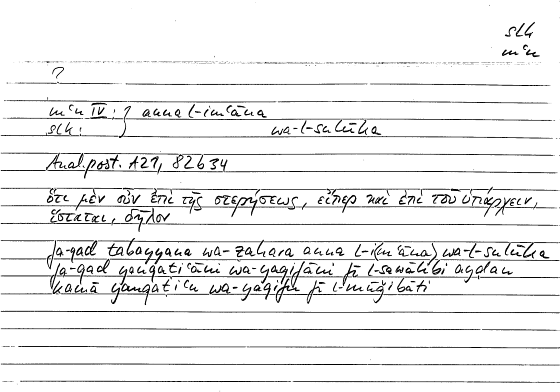 slk
mʿn
?
mʿn IV: } anna l-imʿāna
slk: } wa-l-sulūka
Anal.post. A21, 82b34
ὅτι μὲν οὖν ἐπὶ τῆς στερήσεως, εἴπερ καὶ ἐπὶ τοῦ ὑπάρχειν,
ἵσταται, δῆλον
fa-qad tabayyana wa-ẓahara anna l-i(mʿāna) wa-l-sulūka
fa-qad yanqaṭiʿāni wa-yaqifāni fī l-sawālibi ayḍan
kamā yanqaṭiʿu wa-yaqifu fī l-mūǧibāti